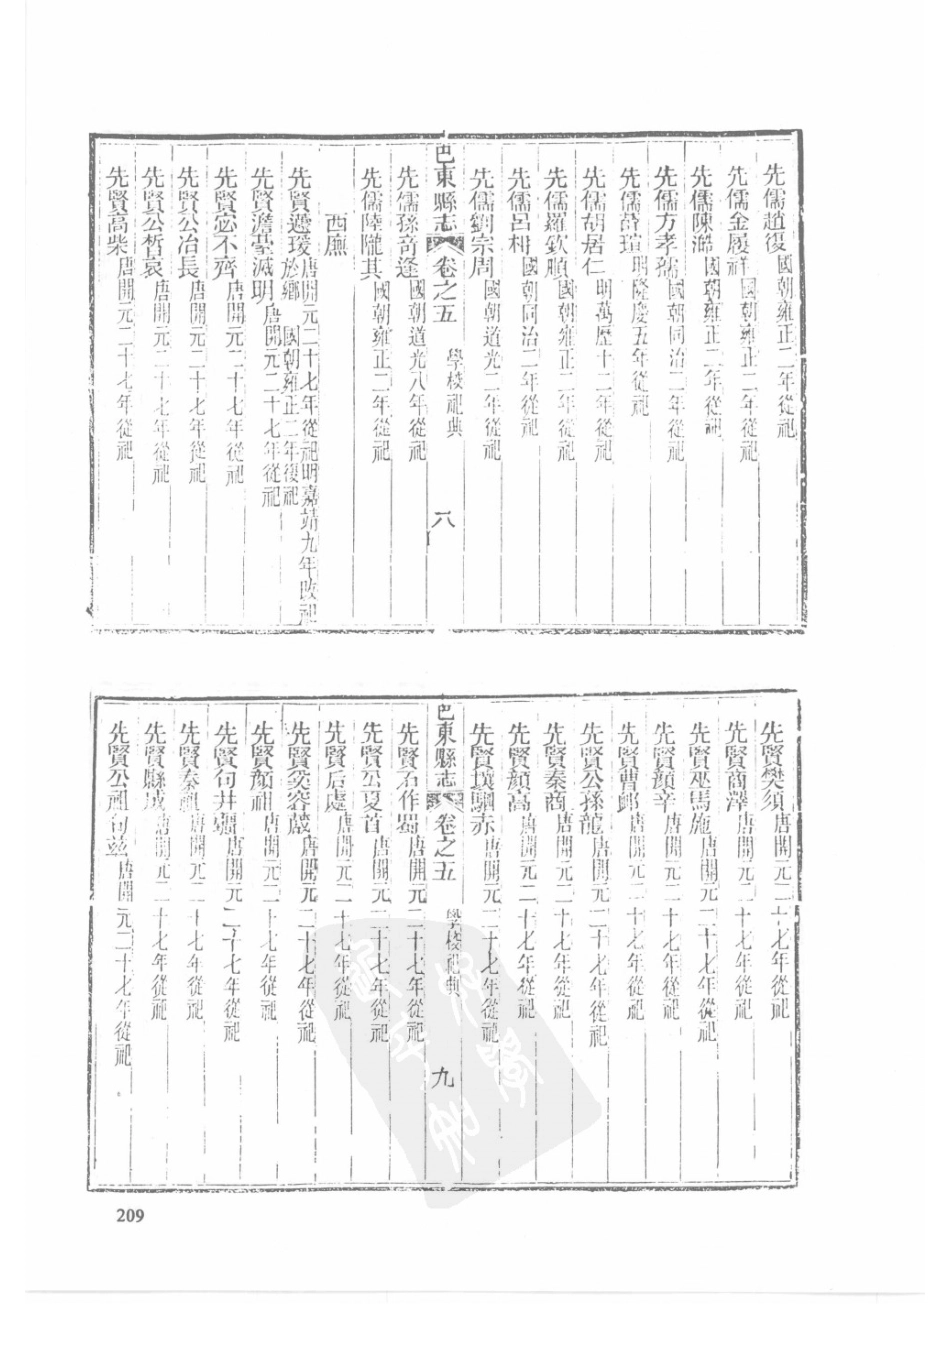 先儒趙復國朝雍正二年從祀
先儒金履祥國朝雍正二年從祀
先儒陳澔國朝雍正二年從祀
先儒方孝孺國朝同治二年從祀
先儒薛瑄明隆慶五年從祀
先儒胡居仁明萬歷十二年從祀
先儒羅欽順國朝雍正二年從祀
先儒呂柟國朝同治二年從祀
先儒劉宗周國朝道光二年從祀
巴東縣志 卷之五 學校祀典 八
先儒孫奇逢國朝道光八年從祀
先儒陸隴其國朝雍正二年從祀
西廡
先賢蘧瑗唐開元二十七年從祀明嘉靖九年改祀於鄉 國朝雍正二年復祀
先賢澹臺滅明唐開元二十七年從祀
先賢宓不齊唐開元二十七年從祀
先賢公冶長唐開元二十七年從祀
先賢公皙哀唐開元二十七年從祀
先賢高柴唐開元二十七年從祀
先賢樊須唐開元二十七年從祀
先賢商澤唐開元二十七年從祀
先賢巫馬施唐開元二十七年從祀
先賢顏辛唐開元二十七年從祀
先賢曹卹唐開元二十七年從祀
先賢公孫龍唐開元二十七年從祀
先賢秦商唐開元二十七年從祀
先賢顏高唐開元二十七年從祀
先賢壤駟赤唐開元二十七年從祀
巴東縣志 卷之五 學校祀典 九
先賢石作蜀唐開元二十七年從祀
先賢公夏首唐開元二十七年從祀
先賢后處唐開元二十七年從祀
先賢奚容蒧唐開元二十七年從祀
先賢顏祖唐開元二十七年從祀
先賢句井疆唐開元二十七年從祀
先賢秦祖唐開元二十七年從祀
先賢縣成唐開元二十七年從祀
先賢公祖句茲唐開元二十七年從祀
209